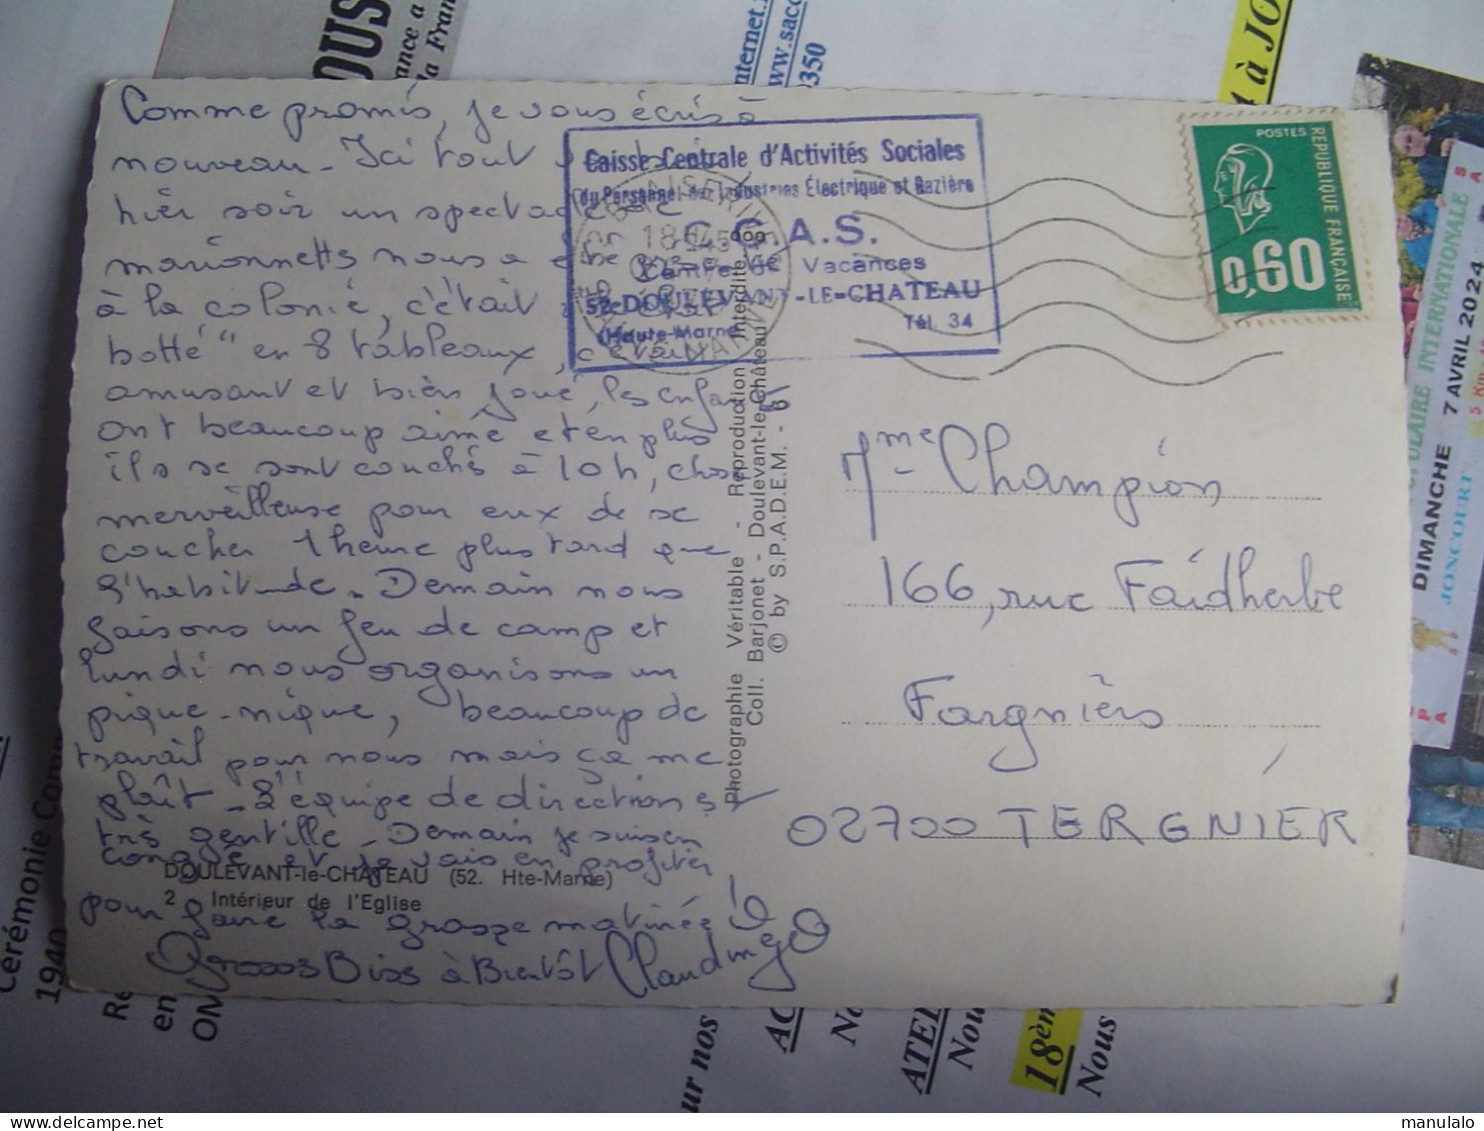 Comme promis, je vous écris à
nouveau - Ici tout
hier soir un spectacle de
marionnetts nous a été
à la colonie, c'était
botté" en 8 tableaux, c'était
amusant et bien joué, les enfants
ont beaucoup aimé et en plus
ils se sont couchés à 10h, chose
merveilleuse pour eux de se
coucher 1 heure plus tard que
l'habitude. Demain nous
faisons un feu de camp et
lundi nous organisons un
pique-nique, beaucoup de
travail pour nous mais ça me
plaît - L'équipe de direction est
très gentille - Demain je suis en
congé et je vais en profiter
pour faire la grosse matinée
Grosses Bises à Bientôt Claudine
DOULEVANT-le-CHATEAU (52. Hte-Marne)
2 Intérieur de l'Eglise
Photographie Véritable - Reproduction Interdite
Coll. Barjonet - Doulevant-le-Château
© by S.P.A.D.E.M. -
Caisse Centrale d'Activités Sociales
du Personnel des Industries Électrique et Gazière
C.C.A.S.
Centre de Vacances
52-DOULEVANT-LE-CHATEAU
(Haute-Marne) Tél. 34
POSTES
REPUBLIQUE FRANÇAISE
0,60
Mme Champion
166, rue Faidherbe
Fargniers
02700 TERGNIER
nternet.
www.sacc
350
à JO
ance a
la Fran
POPULAIRE INTERNATIONALE
DIMANCHE 7 AVRIL 2024
JONCOURT
Cérémonie Com
1940
en
ur nos
ATEL
Nou
18èm
Nous
manulalo